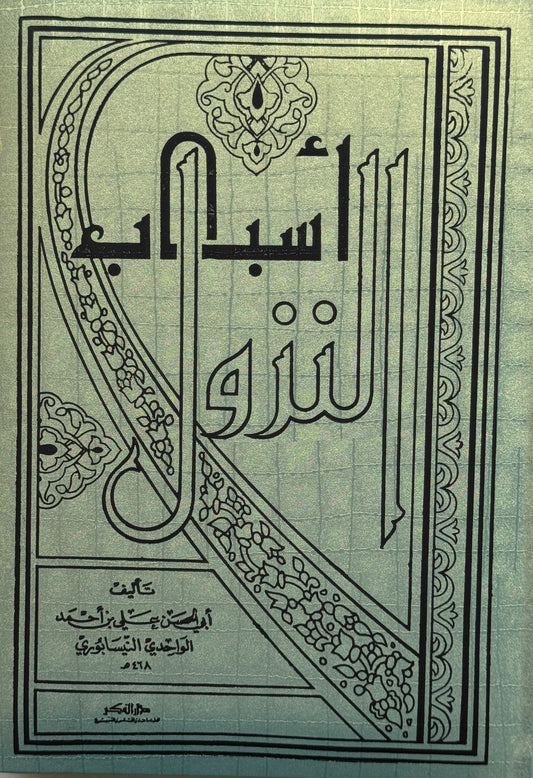 أسباب
النزول
تأليف
أبي الحسن علي بن أحمد
الواحدي النيسابوري
٤٦٨ هـ
دار الفكر
للطباعة والنشر والتوزيع